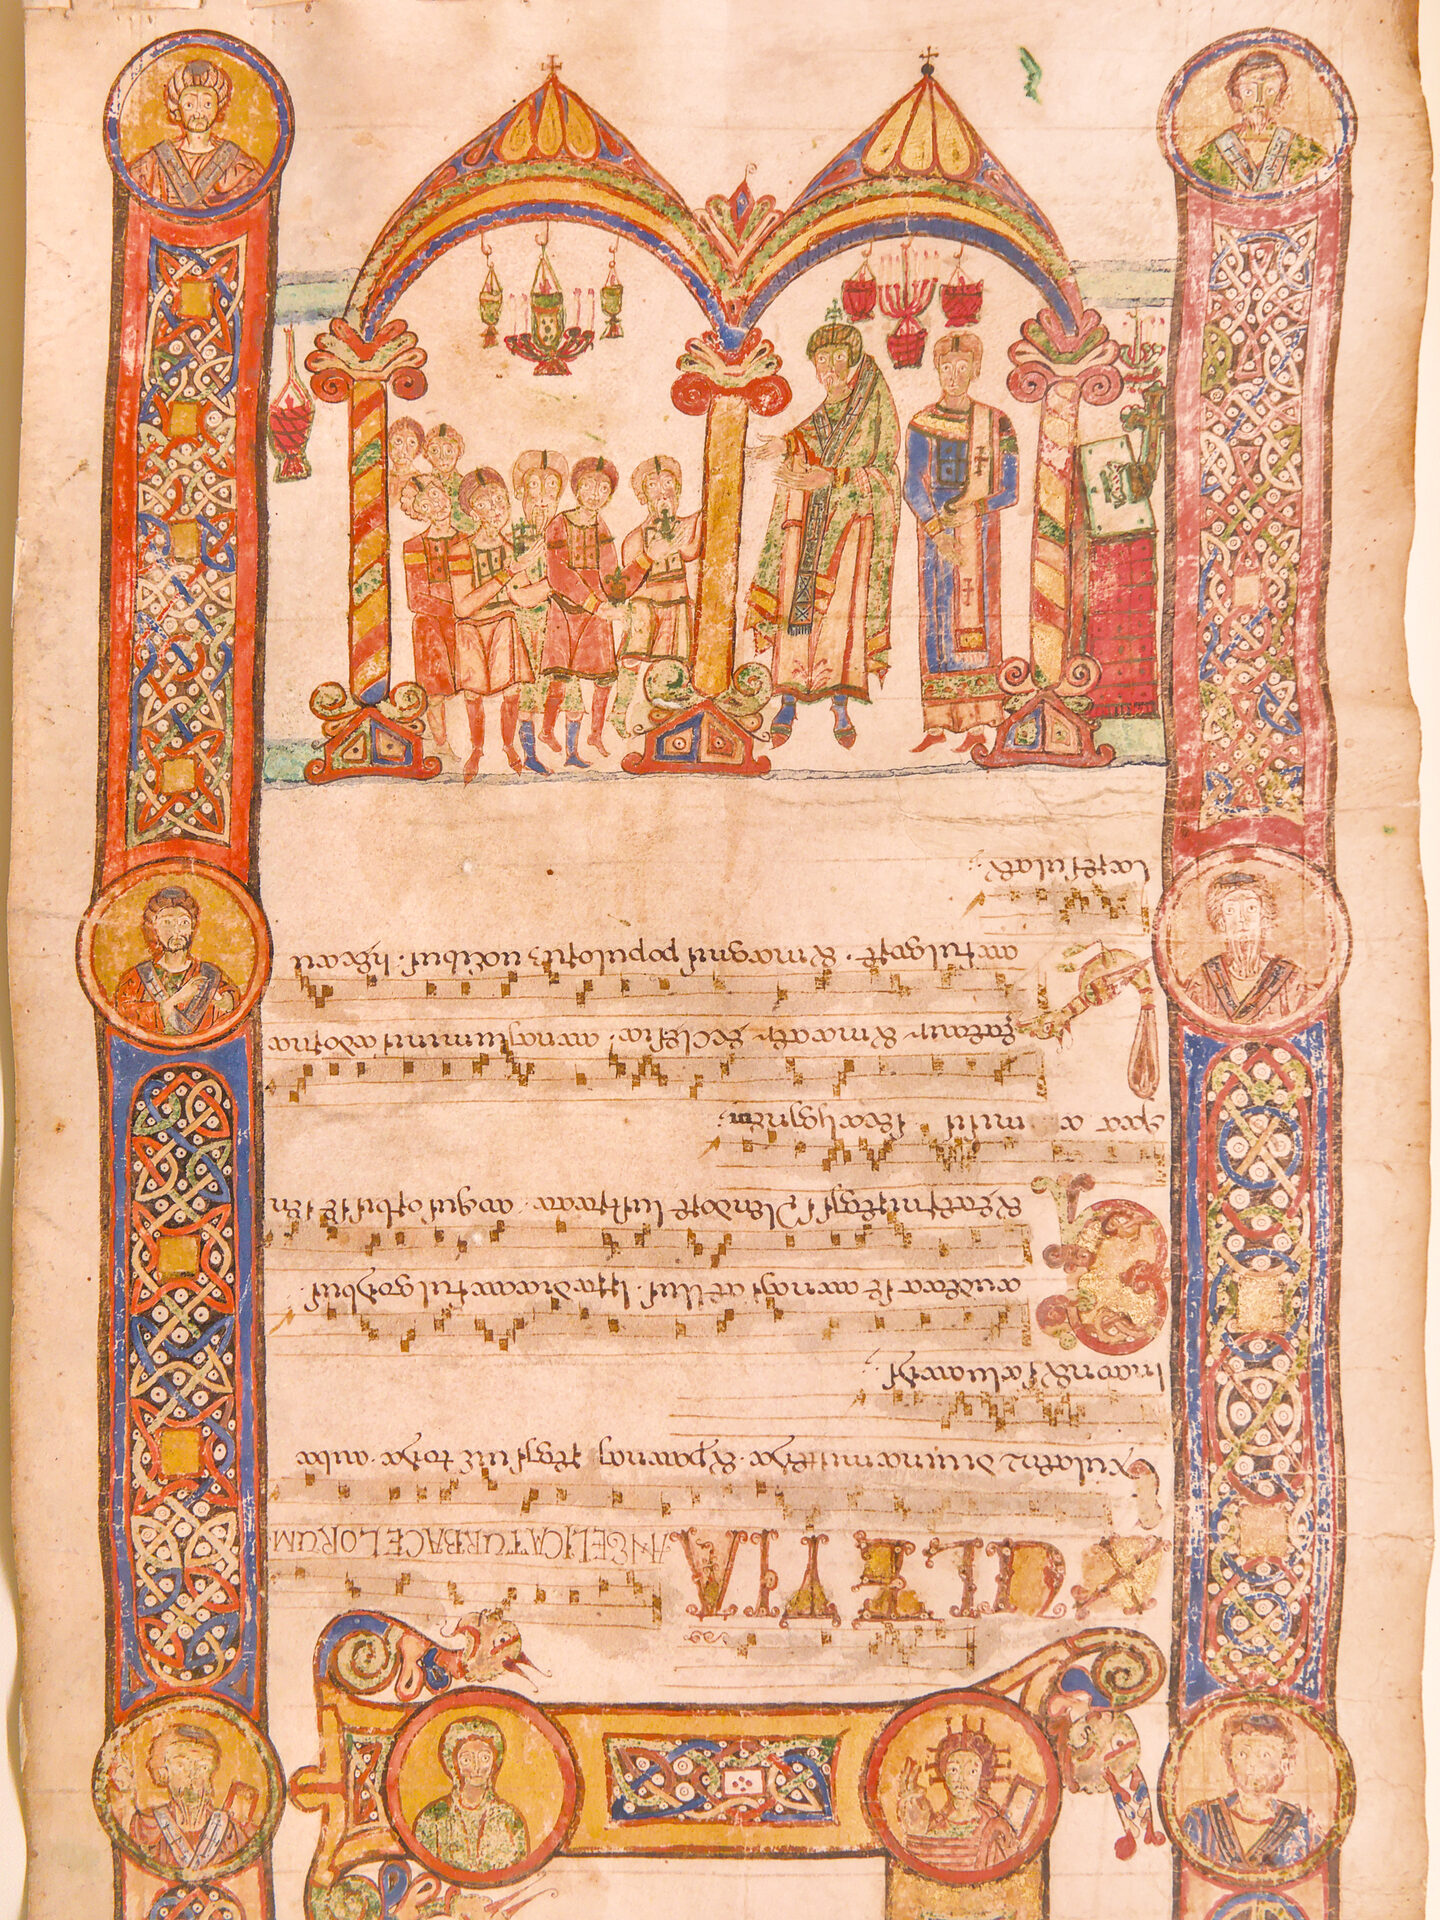 EXULTET IA
ANGELICA TURBA CELORUM
Exultent diuina mysteria. & pro tanti regis uictoria. tuba
intonet salutaris.
Gaudeat se tantis tellus. irradiata fulgoribus.
& eterni regis splendore lustrata. totius orbis se sen
caliginem.
Letetur & mater eclesia. tanti luminis adorna
ta fulgore. & magnis populorum uocibus. hec au
la resultet.